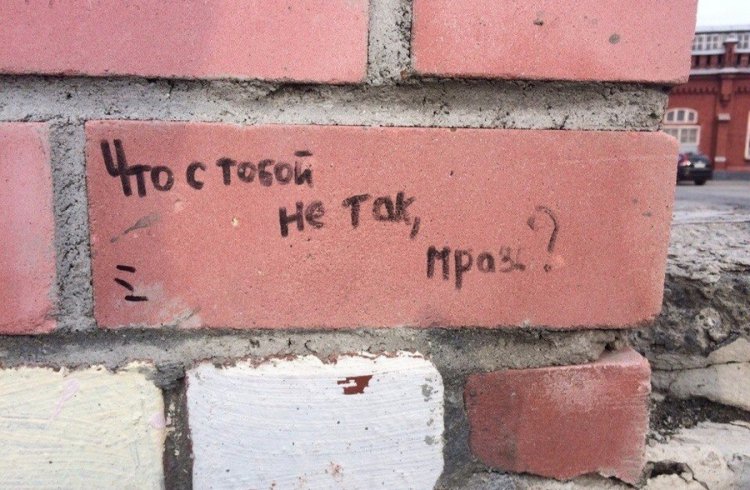 Что с тобой
не так,
мразь?